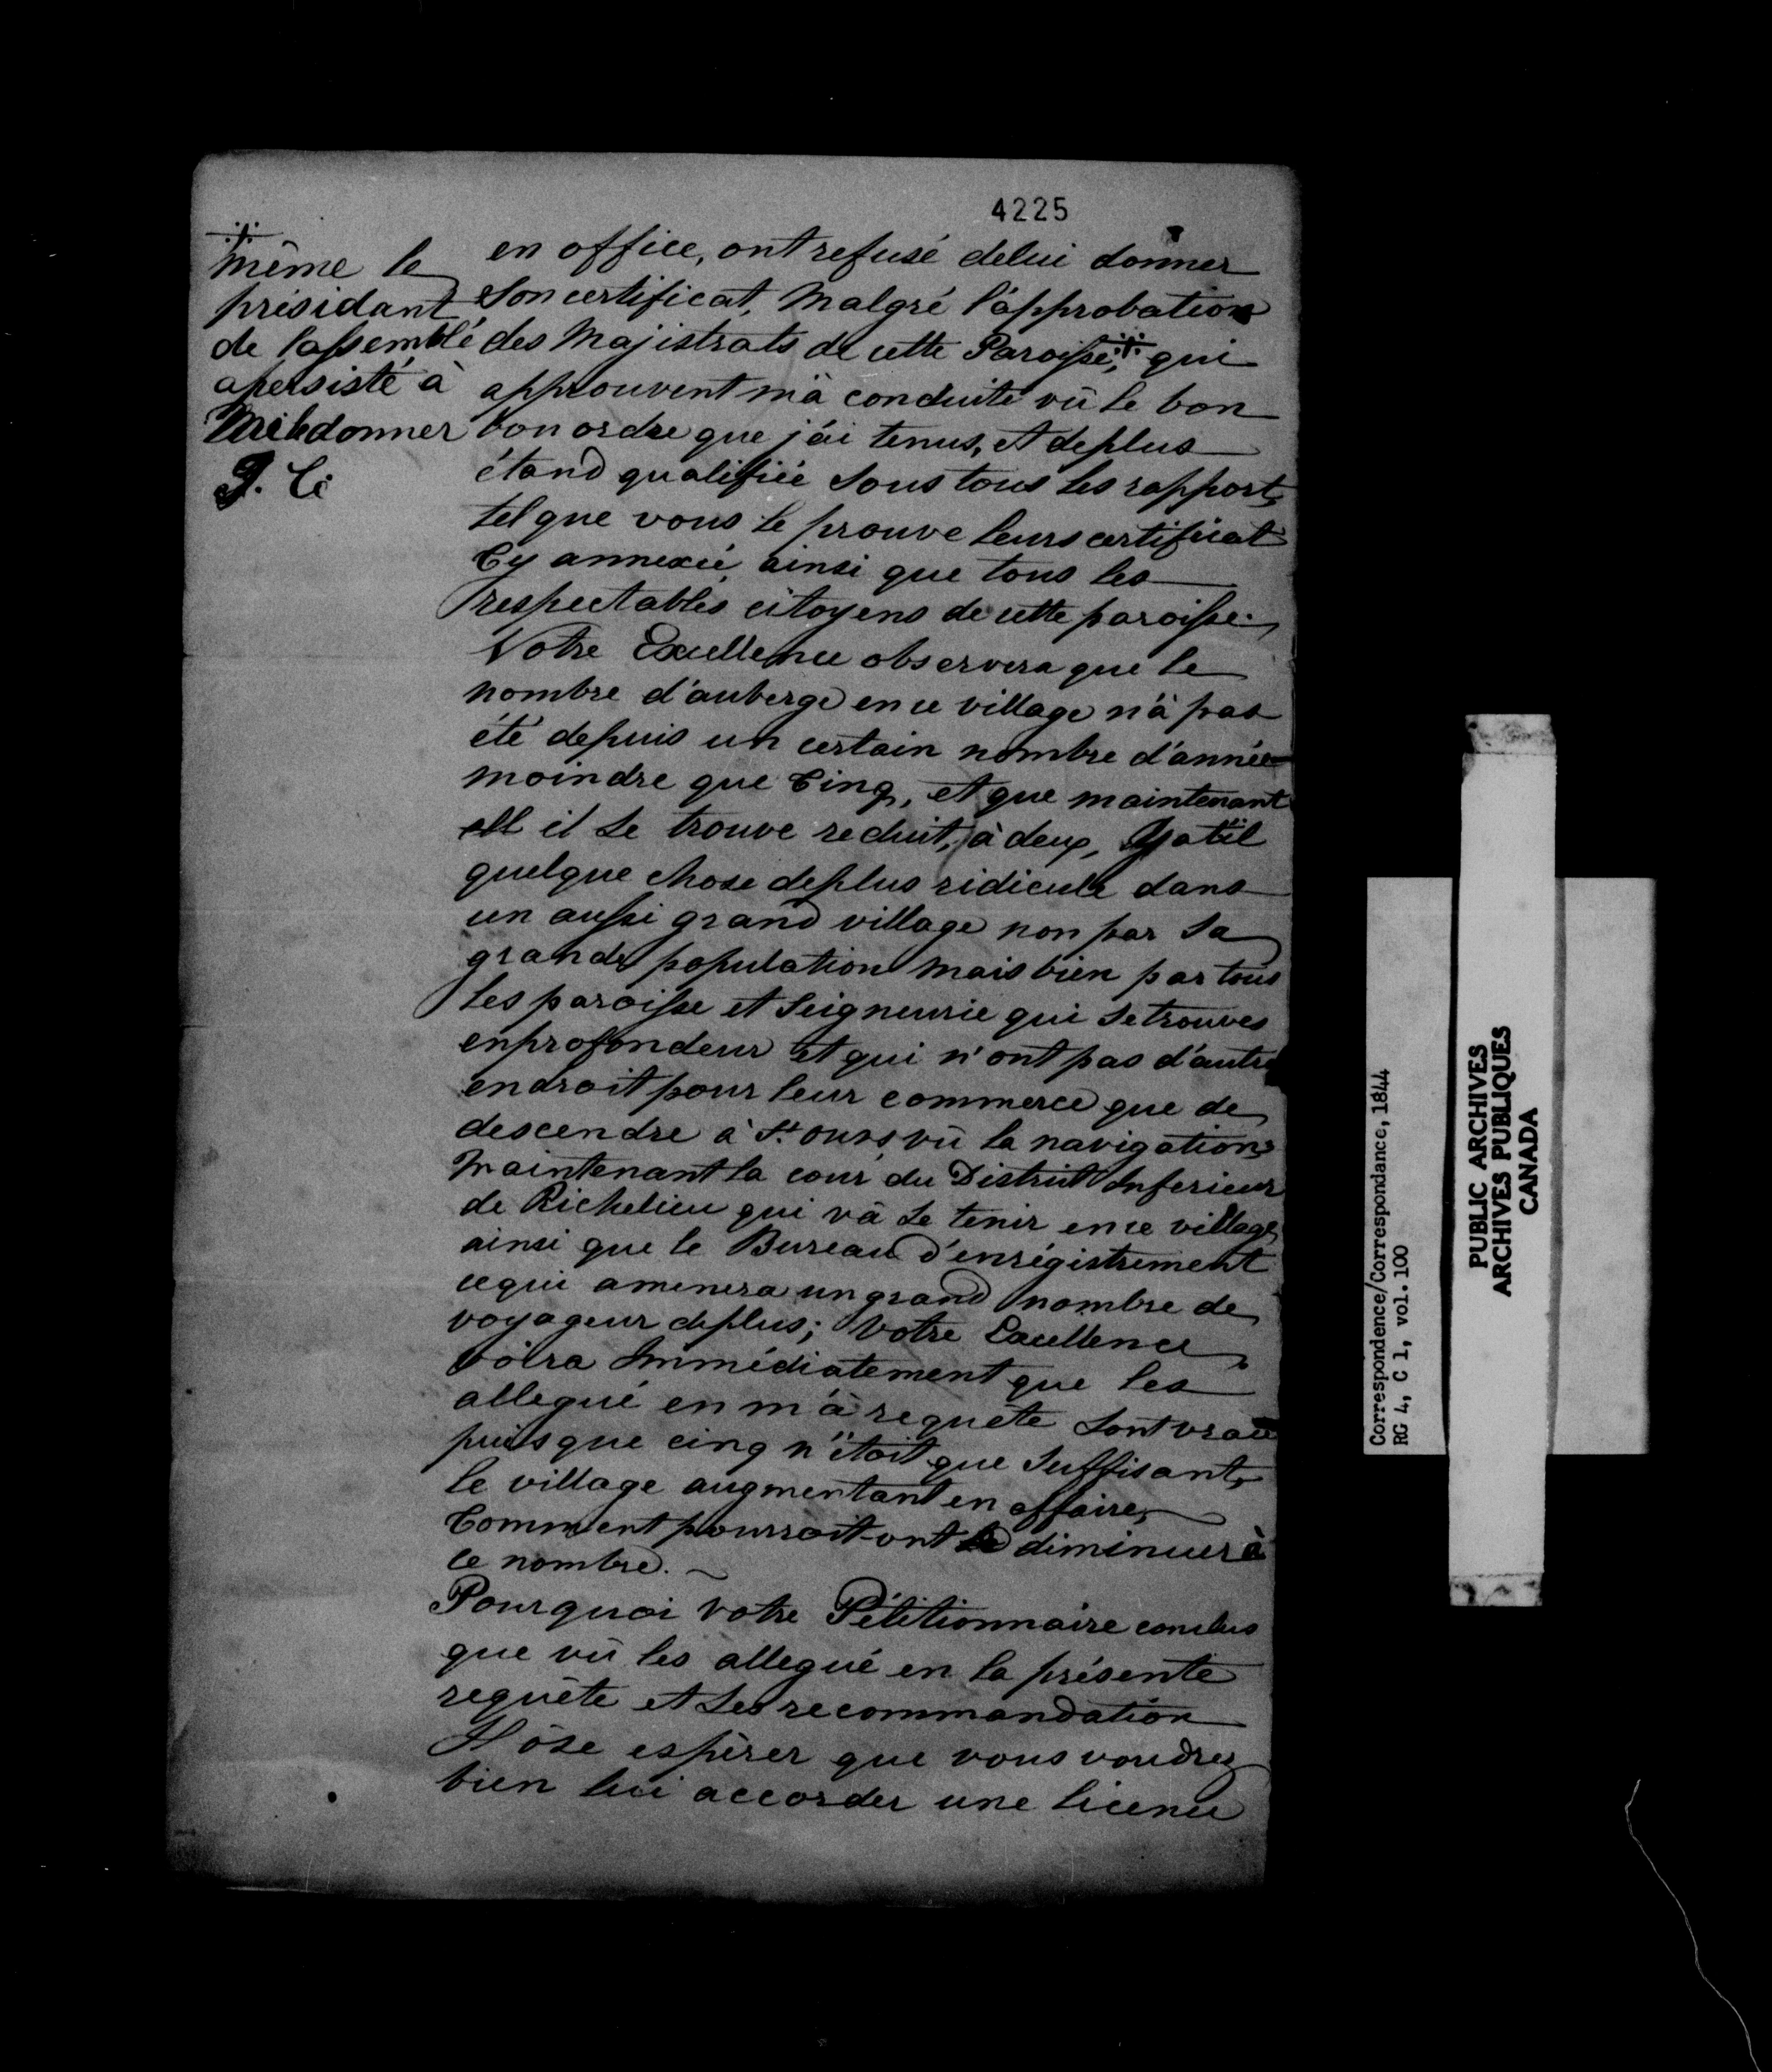 4225
·/·
même le
présidant
de l'assemblé
apersisté à
meledonner
en office, ont refusé delui donner
son certificat, Malgré l'approbation
des Majistrats de cette Paroisse, ·/· qui
approuvent m'à conduite vû le bon
bon ordre que j'ái tenus, et deplus
étand qualifiée sous tous les rapport,
tel que vous le prouve leurs certificat
Cy annexié, ainsi que tous les
respectables citoyens de cette paroisse.
Votre Excellence observera que le
nombre d'auberge en ce village n'à pas
été depuis un certain nombre d'année
moindre que Cinq, et que maintenant
il se trouve reduit, à deux, Yatil
quelque chose deplus ridicule dans
un aussi grand village non par sa
grande population mais bien par tous
les paroisse et Seigneurie qui se trouves
enprofondeur et qui n'ont pas d'autre
endroit pour leur commerce que de
descendre à St. ours, vû la navigation,
Maintenant la cour du District Inferieur
de Richelieu qui vâ se tenir en ce village
ainsi que le Bureau d'enrégistrement
cequi amenera un grand nombre de
voyageur deplus; Votre Excellence
voira Immédiatement que les
allegué en m'à requête sont vraie
puisque cinq n'étoit que suffisant,
le village augmentant en affaire,
Comment pourroit-ont diminuer à
ce nombre.
Pourquoi votre Pétitionnaire conclus
que vû les allegué en la présente
requête et les recommandation
Il ôse espèrer que vous voudrez
bien lui accorder une licence
Correspondence/Correspondance, 1844
RG 4, C 1, vol. 100
PUBLIC ARCHIVES
ARCHIVES PUBLIQUES
CANADA